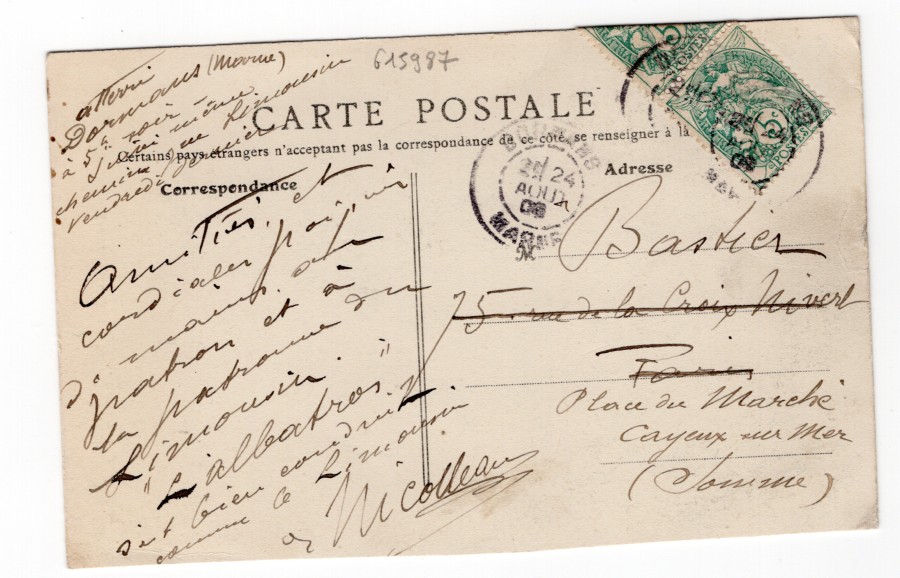 615987
atterri
Dormans (Marne)
à 5h soir
chemin que Limousin
vendredi dernier
CARTE POSTALE
Certains pays étrangers n'acceptent pas la correspondance de ce côté, se renseigner à la
Correspondance
Adresse
DORMANS
24
AOUT
08
MARNE
Amitiés et
cordiales poignées
de mains au
patron et à
la patronne du
Limousin.
"L'albatros"
s'est bien conduit
comme le Limousin
Nicolleau
Bastier
75 rue de la Croix Nivert
Paris
Place du Marché
Cayeux sur Mer
(Somme)